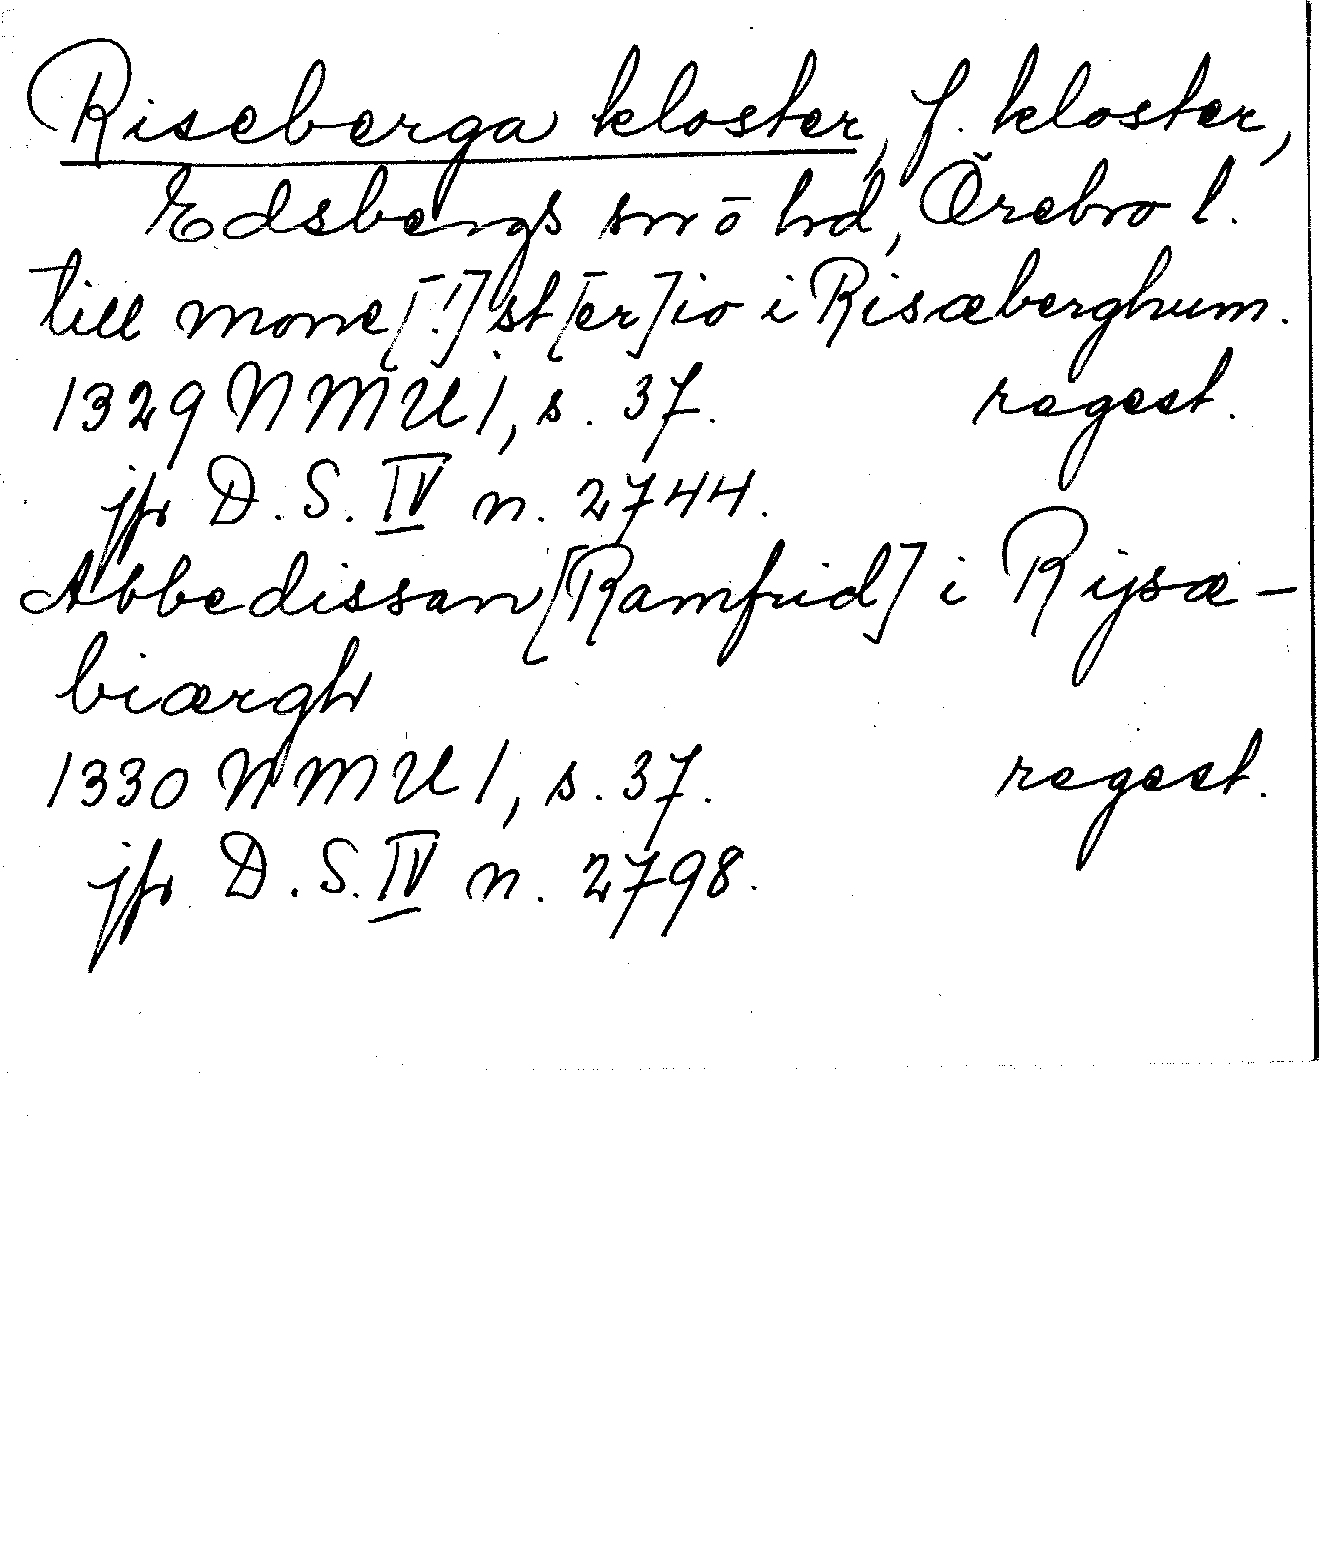 Riseberga kloster, f. kloster,
Edsbergs sn o hd, Örebro l.
till mone[!]st[er]io i Risæberghum.
1329 NMU 1, s. 37. regest.
jfr D. S. IV n. 2744.
Abbedissan [Ramfrid] i Rijsæ-
biærgh
1330 NMU 1, s. 37. regest.
jfr D. S. IV n. 2798.